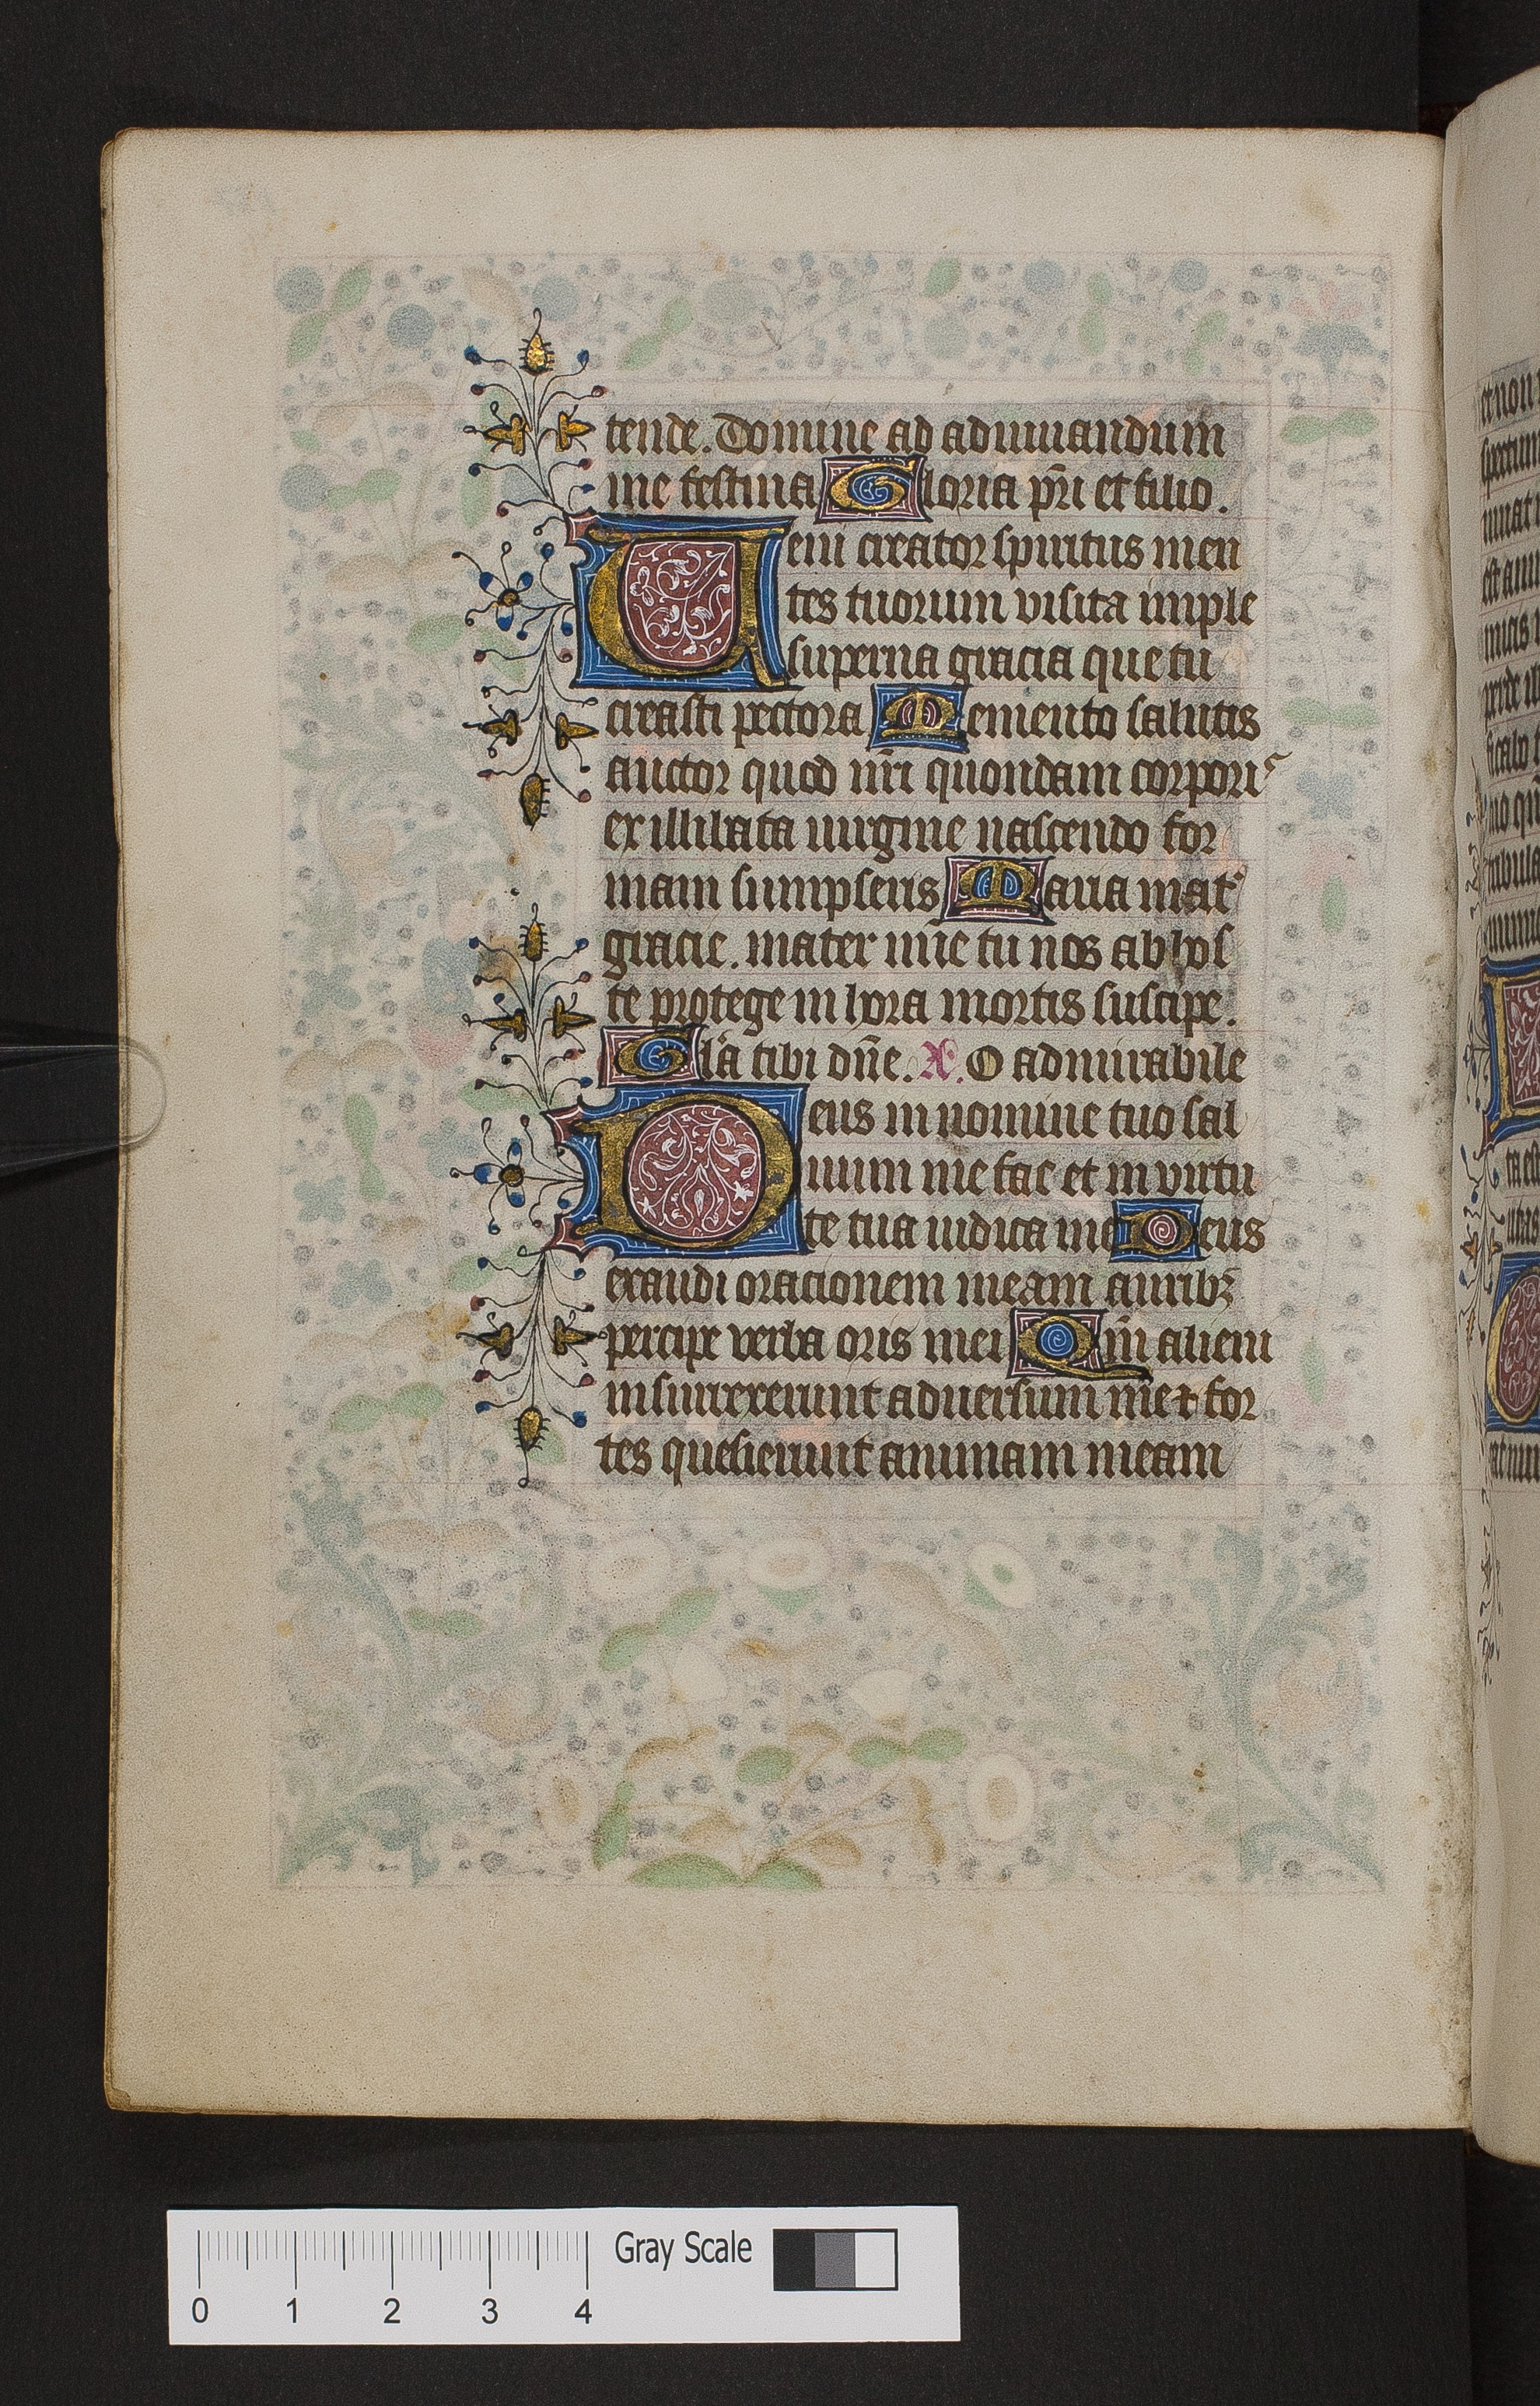 tende. Domine ad adiuuandum
me festina Gloria pr̄i et filio.
Ueni creator spiritus men
tes tuorum visita imple
superna gracia que tu
creasti pectora Memento salutis
auctor quod nr̄i quondam corporis
ex illibata uirgine nascendo for
mam sumpseris Maria mat᷑
gracie. mater mīe tu nos ab hos
te protege in hora mortis suscipe.
Gl̄a tibi dn̄e. A. O admirabile
Deus in nomine tuo sal
uum me fac et in virtu
te tua iudica me Deus
exaudi oracionem meam aurib⁊
percipe verba oris mei Qm̄ alieni
insurrexerunt aduersum me ⁊ for
tes quesierunt animam meam
Gray Scale
0 1 2 3 4